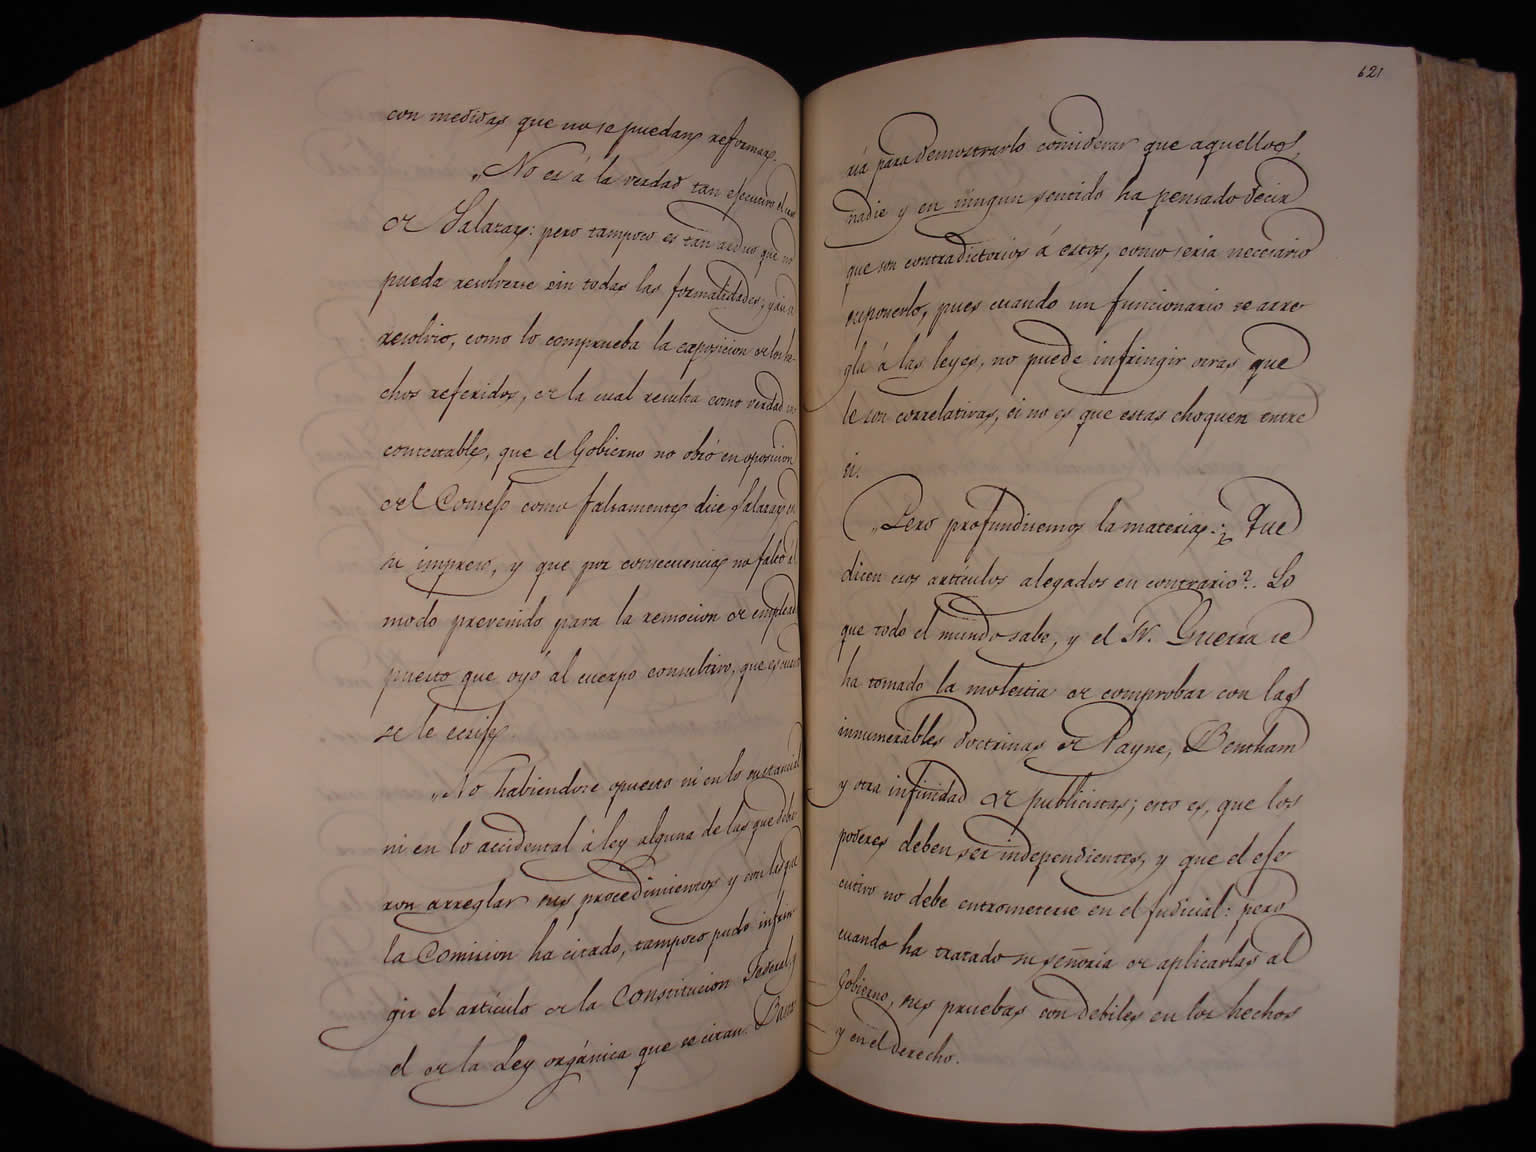 con medidas que no se puedan reformar.
„No es á la verdad tan ejecutivo el caso
de Salazar: pero tampoco es tan arduo que no
pueda resolverse sin todas las formalidades, y así
resolvio, como lo comprueba la exposicion de los he-
chos referidos, de la cual resulta como verdad in
contestable, que el Gobierno no obró en oposicion
del Consejo como falsamente dice Salazar en
su impreso, y que por consecuencia no faltó al
modo prevenido para la remocion de empleado
puesto que oyó al cuerpo consultivo, que es cuanto
se le exije.
„No habiendose opuesto ni en lo sustancial
ni en lo accidental á ley alguna de las que debie
ron arreglar sus procedimientos y con las que
la Comision ha citado, tampoco pudo infrin
gir el artículo de la Constitucion Federal, y
el de la Ley orgánica que se citan. Basta
621
ría para demostrarlo considerar que aquellos,
nadie y en ningun sentido ha pensado decir
que son contradictorios á estos, como seria necesario
suponerlo, pues cuando un funcionario se arre
gla á las leyes, no puede infringir otras que
le son correlativas, si no es que estas choquen entre
si.
„Pero profundisemos la materia. ¿Que
dicen esos artículos alegados en contrario? Lo
que todo el mundo sabe, y el Sr. Guerra se
ha tomado la molestia de comprobar con las
innumerables doctrinas de Payne, Bentham
y otra infinidad de publicistas; esto es, que los
poderes deben ser independientes, y que el eje
cutivo no debe entrometerse en el Judicial: pero
cuando ha tratado su señoría de aplicarlas al
Gobierno, sus pruebas son debiles en los hechos
y en el derecho.